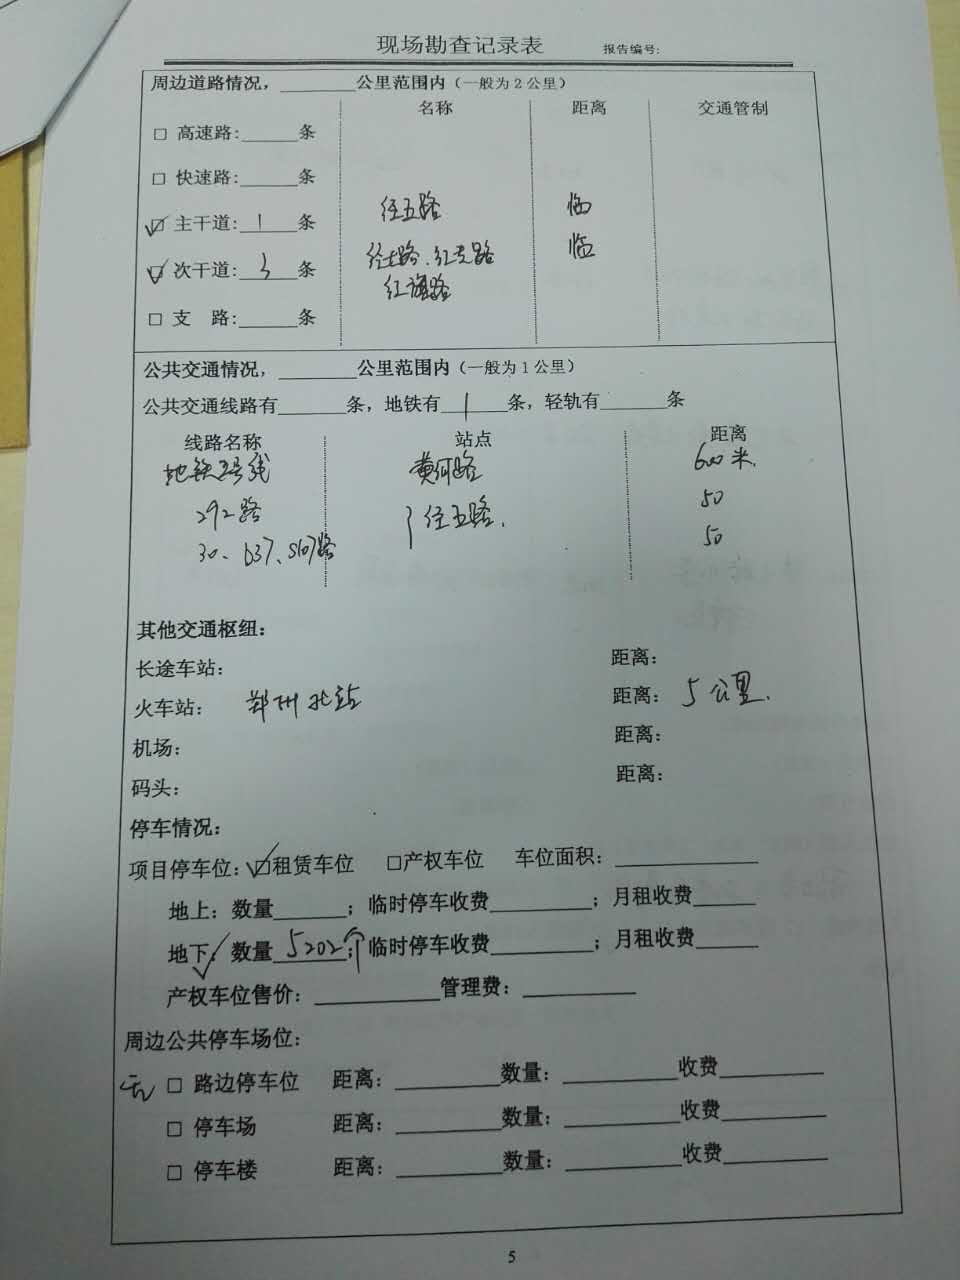 现场勘查记录表 报告编号:
周边道路情况，________公里范围内（一般为2公里）
名称 距离 交通管制
□ 高速路:_____条
□ 快速路:_____条
☑ 主干道: 1 条 经五路 临
☑ 次干道: 3 条 经七路、红专路 临
红旗路
□ 支 路:_____条
公共交通情况，________公里范围内（一般为1公里）
公共交通线路有______条，地铁有 1 条，轻轨有______条
线路名称 站点 距离
地铁2号线 黄河路 600米.
292路 经五路. 50
30、637、S167路 50
其他交通枢纽：
长途车站： 距离：
火车站： 郑州北站 距离： 5公里.
机场： 距离：
码头： 距离：
停车情况：
项目停车位：☑租赁车位 □产权车位 车位面积：____________
地上：数量______；临时停车收费_________；月租收费_____
地下：数量 5202个；临时停车收费_________；月租收费_____
产权车位售价：___________管理费：__________
周边公共停车场位：
无 □ 路边停车位 距离：_________数量：__________收费_________
□ 停车场 距离：_________数量：__________收费_________
□ 停车楼 距离：_________数量：__________收费_________
5